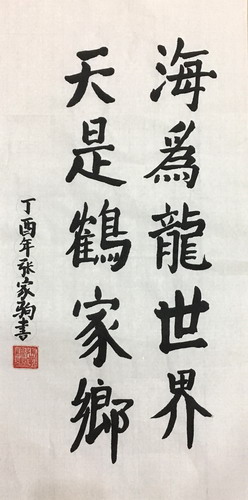 海為龍世界
天是鶴家鄉
丁酉年張家駒書